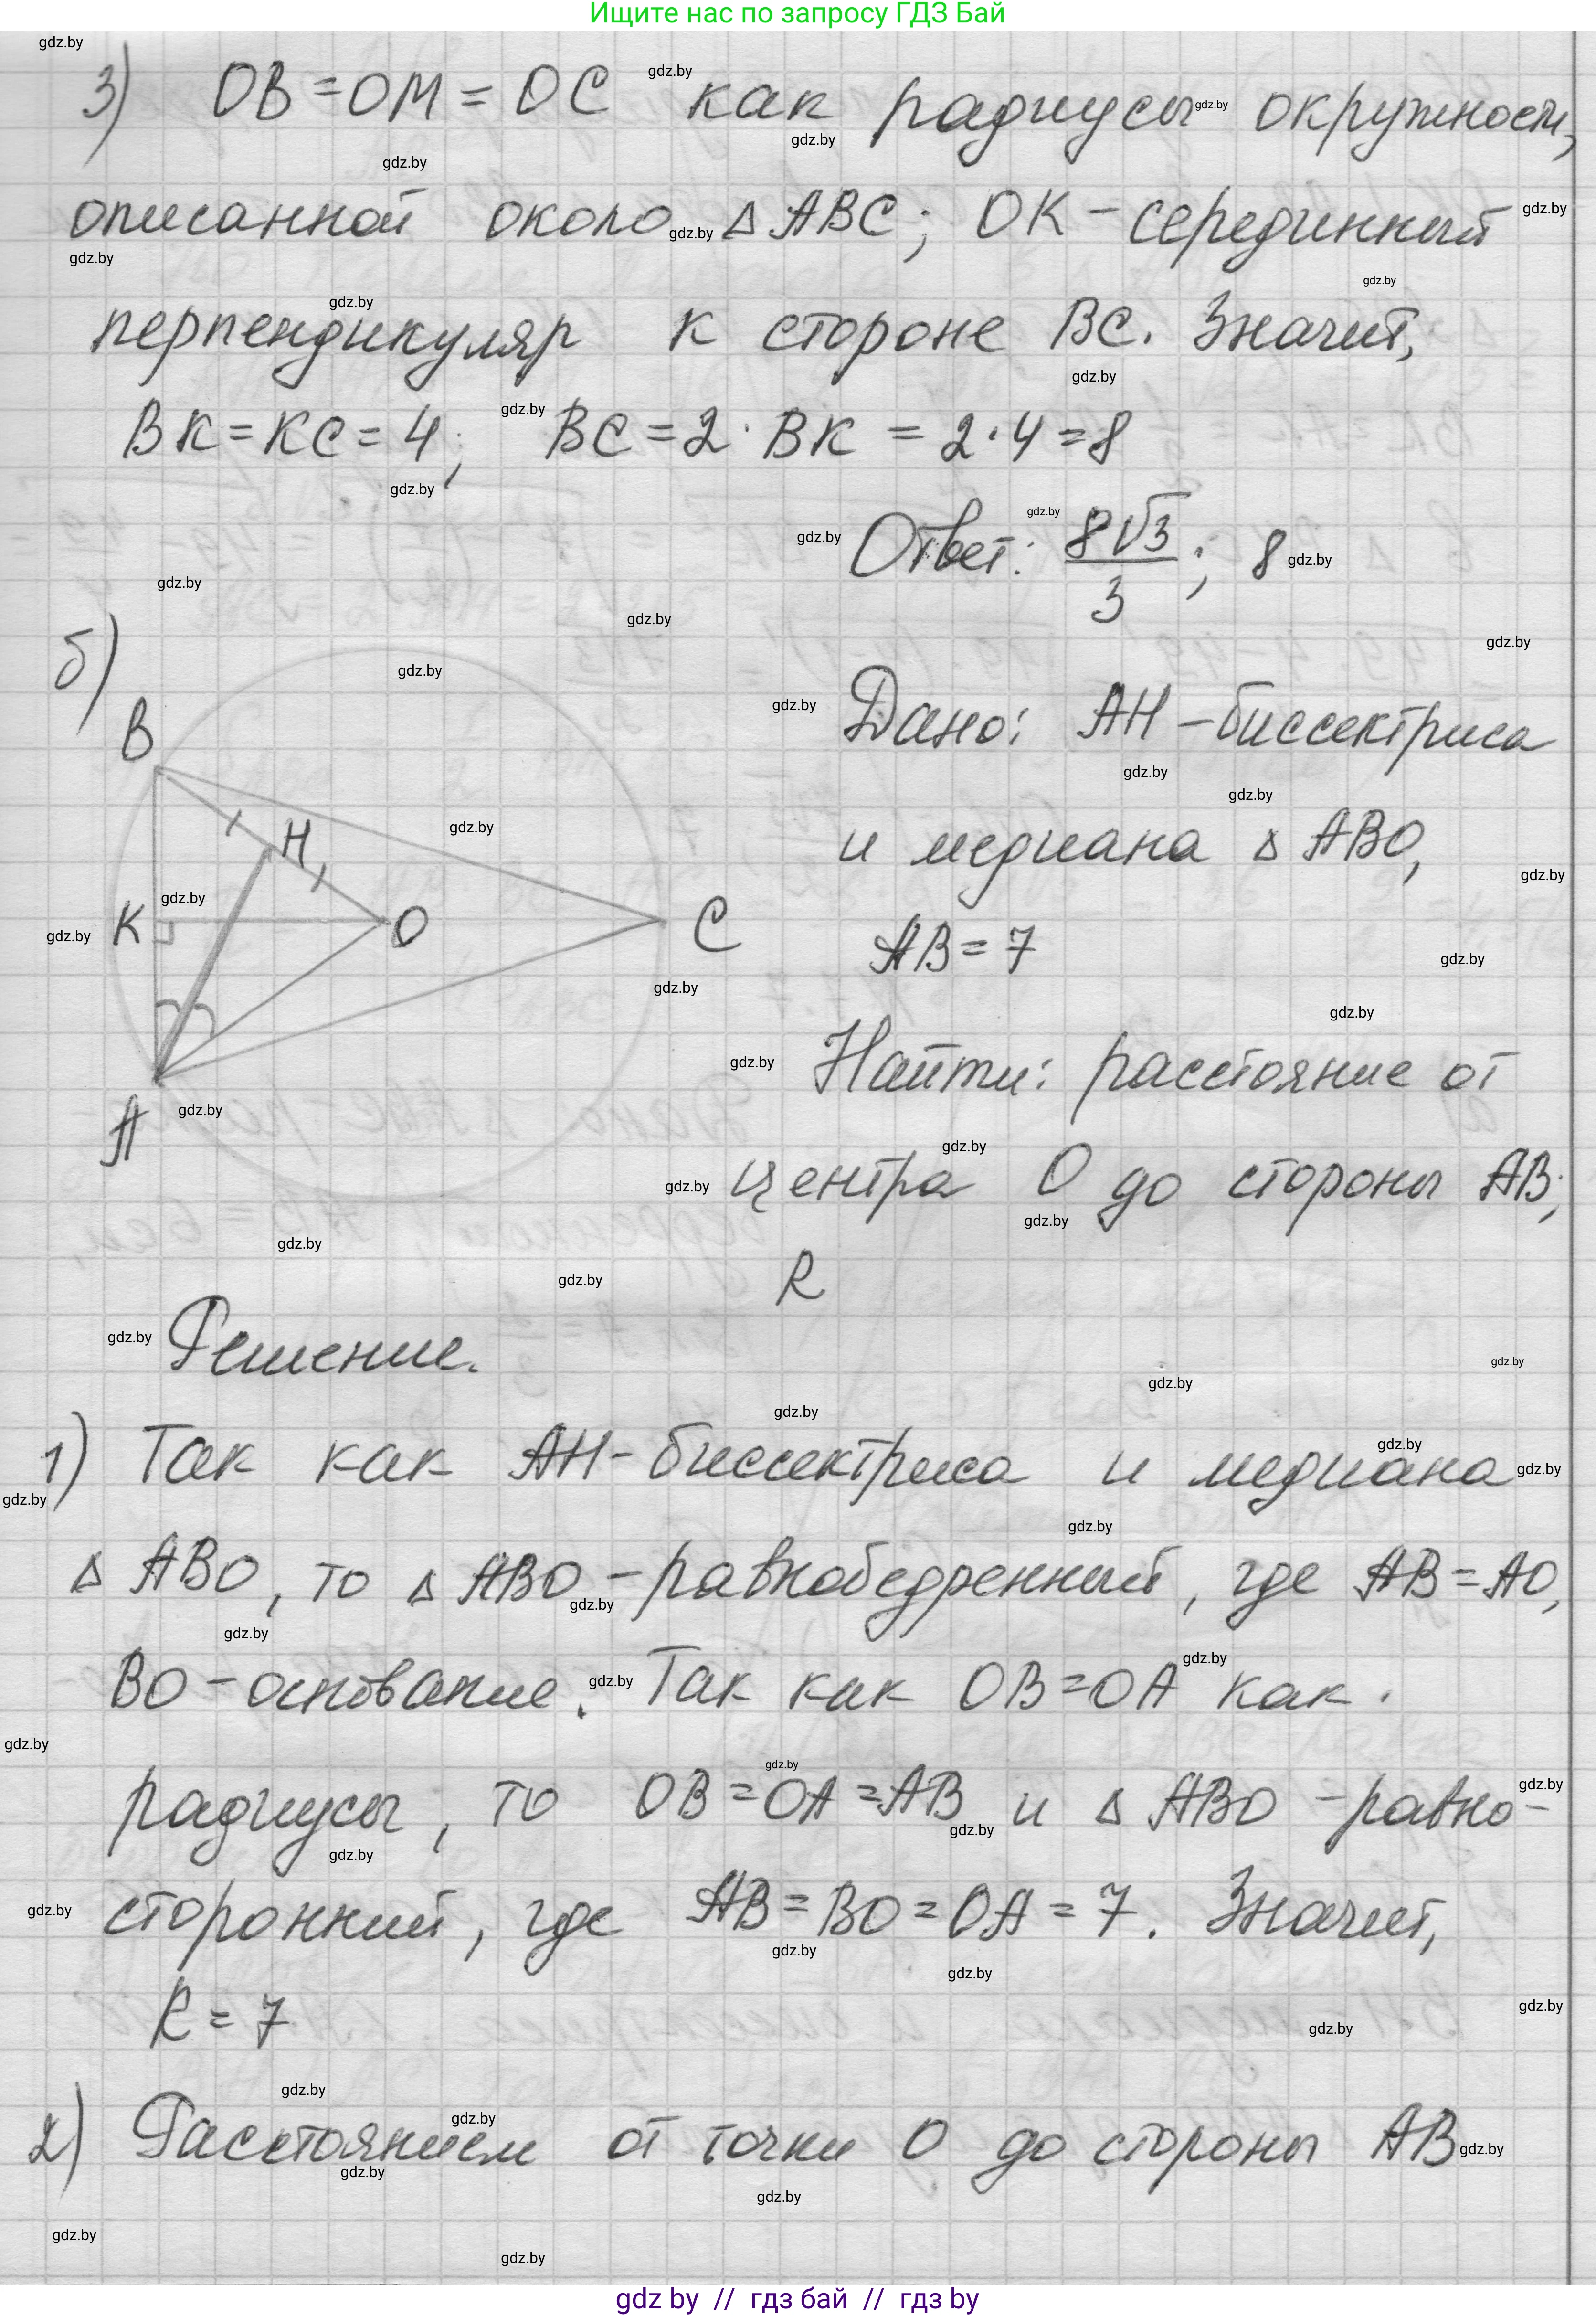 Ищите нас по запросу ГДЗ Бай
3) OB = OM = OC как радиусы окружности,
описанной около △ABC; OK - серединный
перпендикуляр к стороне BC. Значит,
BK = KC = 4; BC = 2 · BK = 2 · 4 = 8
Ответ: 8√3/3; 8
б)
B
H
K
O
C
A
Дано: AH - биссектриса
и медиана △ ABO,
AB = 7
Найти: расстояние от
центра O до стороны AB;
R
Решение.
1) Так как AH - биссектриса и медиана
△ ABO, то △ ABO - равнобедренный, где AB = AO,
BO - основание. Так как OB = OA как
радиусы, то OB = OA = AB и △ ABO - равно-
сторонний, где AB = BO = OA = 7. Значит,
R = 7
2) Расстоянием от точки O до стороны AB
gdz by // гдз бай // гдз by
gdz.by